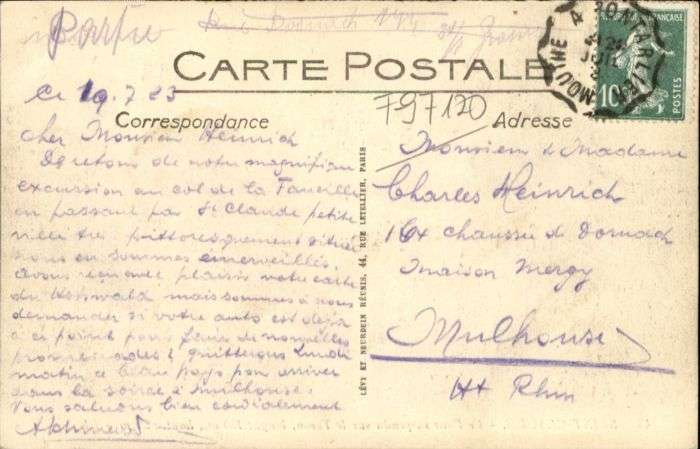 Partie
CARTE POSTALE
Correspondance
Adresse
Ce 19.7.23
F97120
Cher Monsieur Heinrich
De retour de notre magnifique
excursion au col de la Faucille
en passant par St Claude petite
ville très pittoresquement située
nous en sommes émerveillés.
Avons reçu avec plaisir votre carte
du Hohwald mais sommes à nous
demander si votre auto est déjà
à ce point pour faire de nouvelles
promenades? quitterons Lundi
matin ce beau pays pour arriver
dans la soirée à Mulhouse.
Vous saluons bien cordialement
LÉVY ET NEURDEIN RÉUNIS, 44, RUE LETELLIER, PARIS
Monsieur & Madame
Charles Heinrich
chaussée de Dornach
maison Mergy
Mulhouse
Ht Rhin
MOUTHE
JUIL
FRANÇAISE
10
POSTES